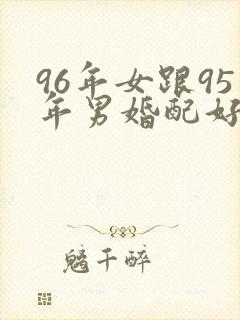 96年女跟95
年男婚配好
千醉